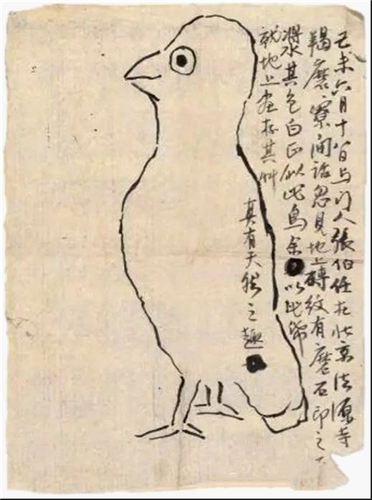 己未六月十八日与门人張伯任在北京法源寺
羯磨寮閒話忽見地上磚紋有磨石印之
漿其色白正似此鳥余以此紙
就地上画存其艸
真有天然之趣